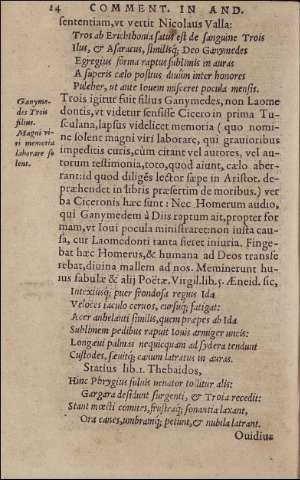 14 COMMENT. IN AND.
sententiam, ut vertit Nicolaus Valla:
Tros ab Erichthonio satus est de sanguine Trois
Ilus, & Asaracus, similisq; Deo Ganymedes
Egregius forma raptus sublimis in auras
A superis cælo positus diuûm inter honores
Pulcher, ut ante Iouem misceret pocula mensis.
Trois igitur fuit filius Ganymedes, non Laome
dontis, ut videtur sensisse Cicero in prima Tu-
sculana, lapsus videlicet memoria (quo nomi-
ne solent magni viri laborare, qui grauioribus
impediti curis, cùm citant vel autores, vel au-
torum testimonia, toto, quod aiunt, cælo aber
rant: id quod diligẽs lector sæpe in Aristot. de-
præhendet in libris præsertim de moribus.) ver
ba Ciceronis hæc sunt: Nec Homerum audio,
qui Ganymedem à Diis raptum ait, propter for
mam, vt Ioui pocula ministraret: non iusta cau-
sa, cur Laomedonti tanta fieret iniuria. Finge-
bat hæc Homerus, & humana ad Deos transfe
rebat, diuina mallem ad nos. Meminerunt hu-
ius fabulæ & alij Poëtæ. Virgil. lib. 5. Æneid. sic,
Intextusq; puer frondosa regius Ida
Veloces iaculo ceruos, cursuq; fatigat:
Acer anhelanti similis, quem præpes ab Ida
Sublimem pedibus rapuit Iouis armiger uncis:
Longæui palmas nequicquam ad sydera tendunt
Custodes, sæuitq; canum latratus in auras.
Statius lib. 1. Thebaidos,
Hinc Phrygius fuluis uenator tollitur alis:
Gargara desidunt surgenti, & Troia recedit:
Stant mœsti comites, frustraq; sonantia laxant,
Ora canes, umbramq; petunt, & nubila latrant.
Ouidius
Ganyme-
des Trois
filius.
Magni vi-
ri memoria
laborare so
lent.